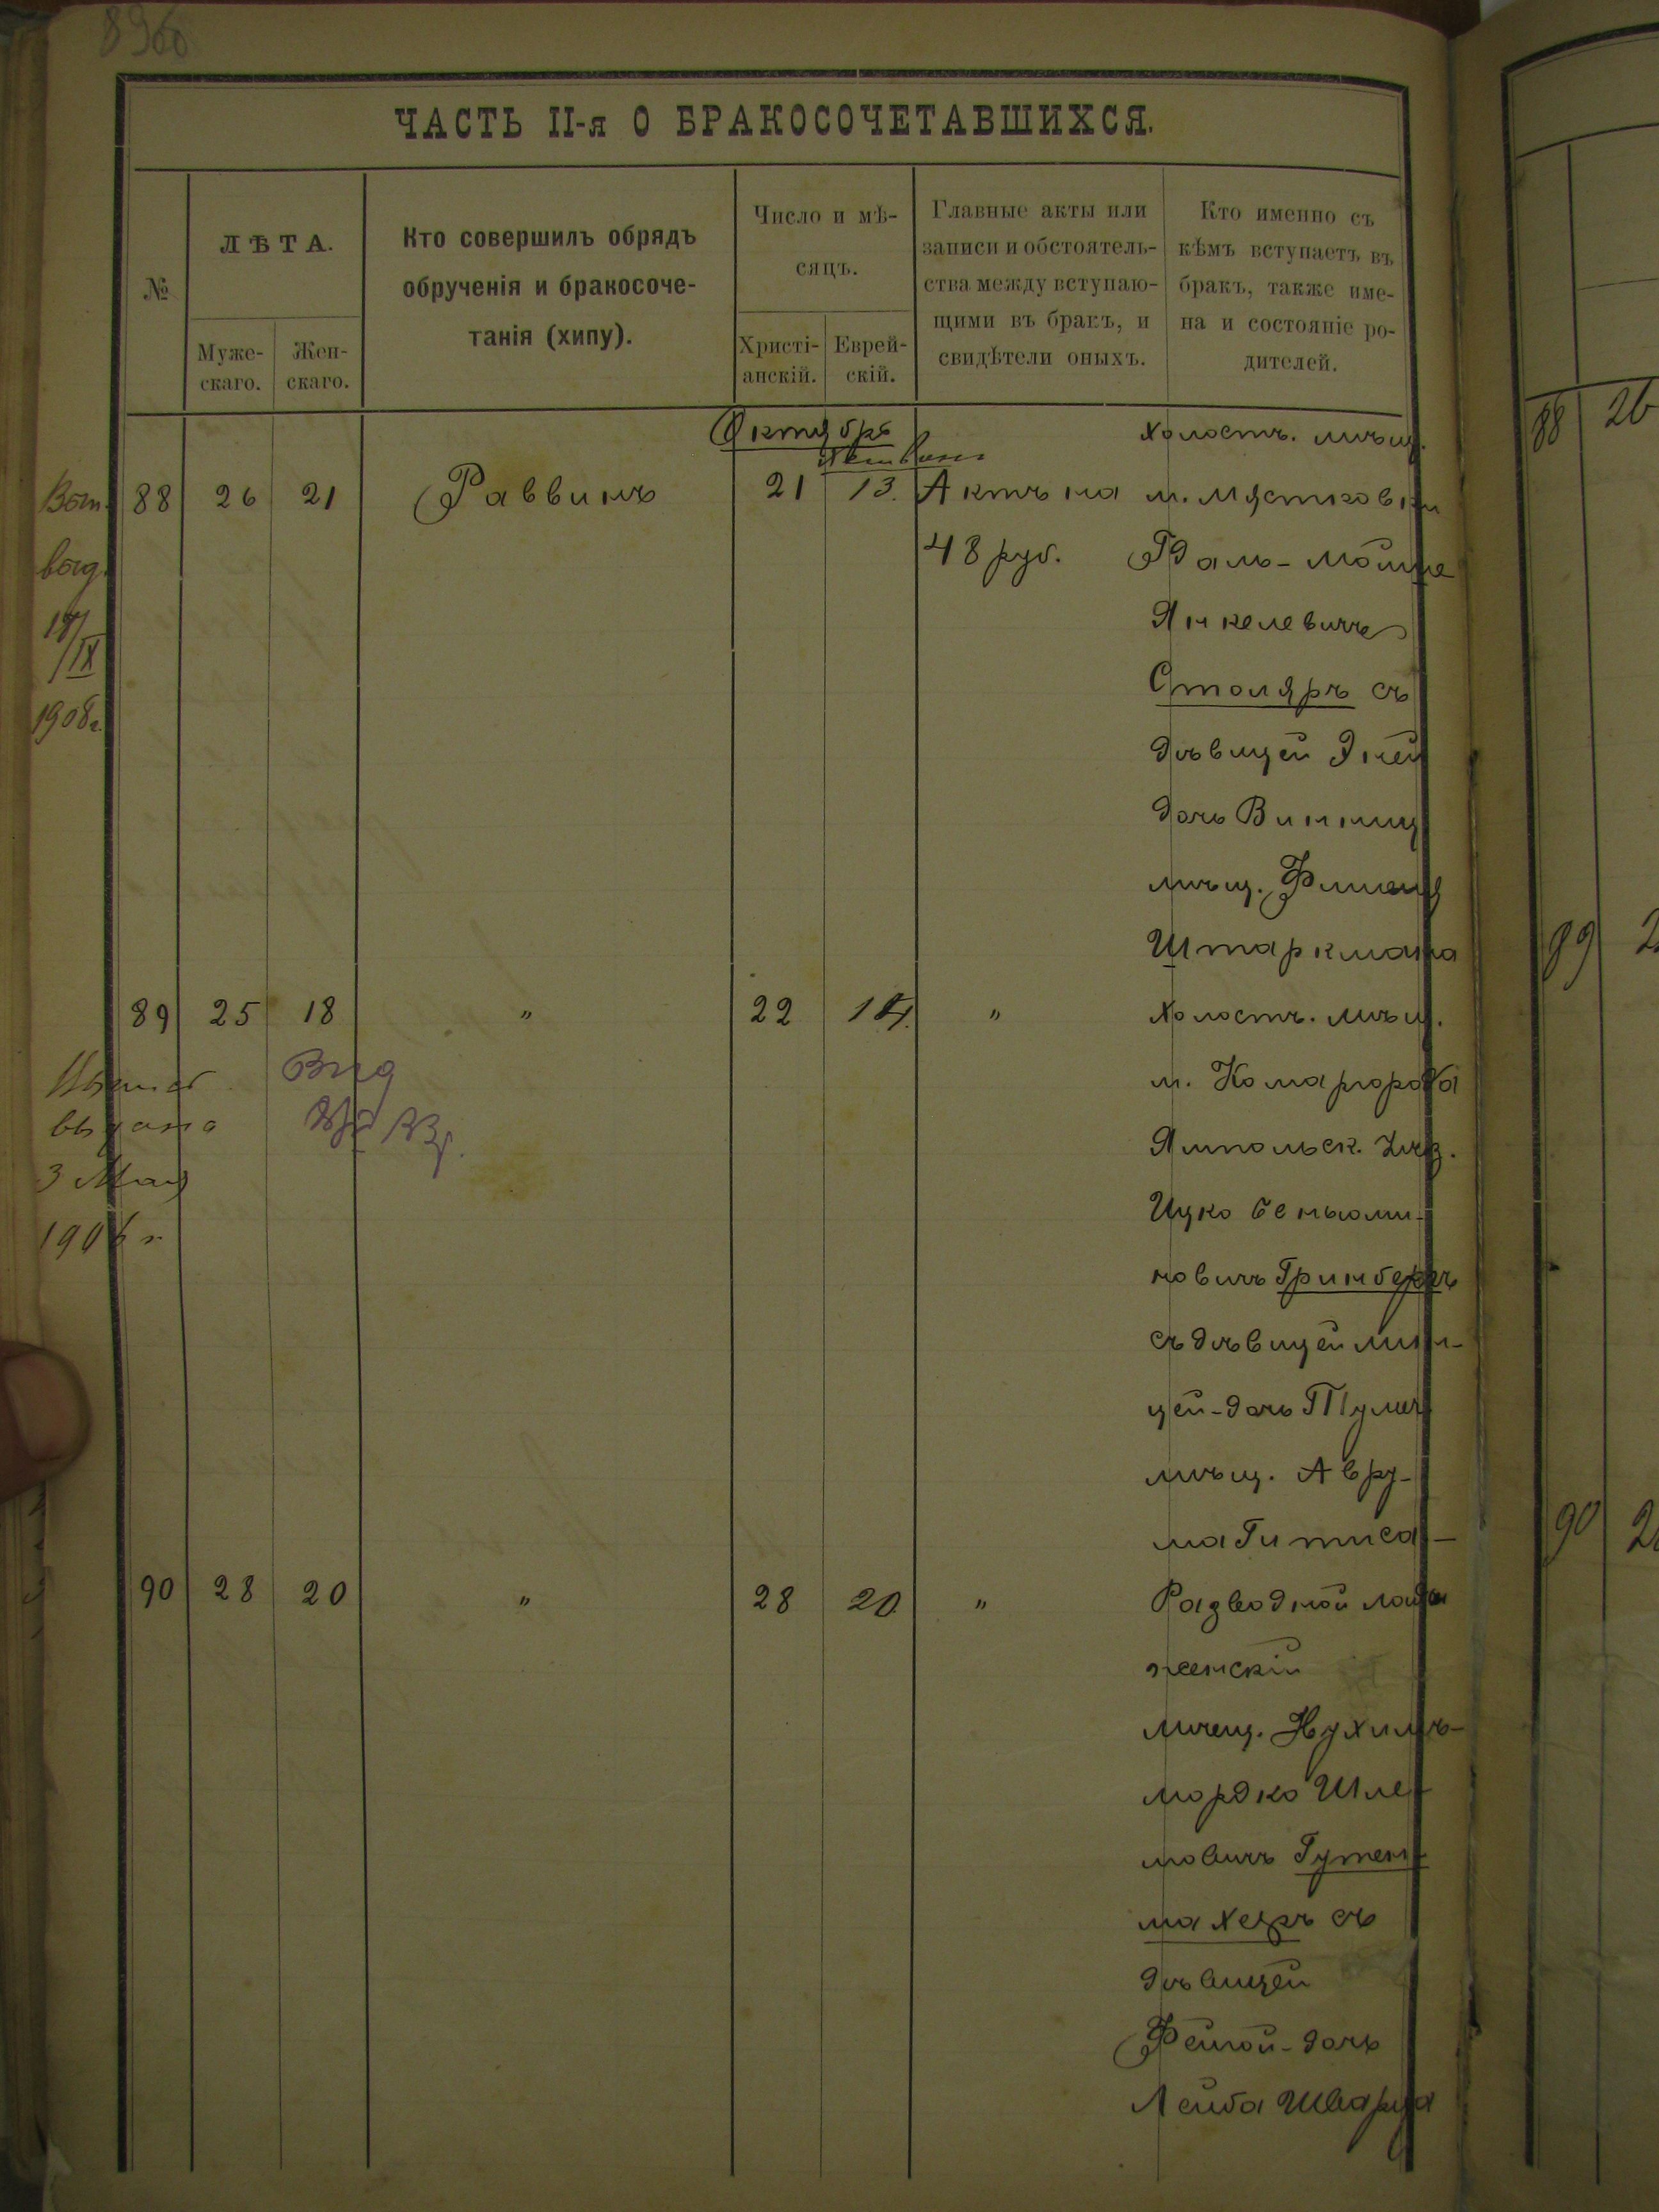 8960
ЧАСТЬ II-я О БРАКОСОЧЕТАВШИХСЯ.
№
ЛѢТА.
Муже-
скаго.
Жен-
скаго.
Кто совершилъ обрядъ
обрученія и бракосоче-
танія (хипу).
Число и мѣ-
сяцъ.
Христі-
анскій.
Еврей-
скій.
Главные акты или
записи и обстоятель-
ства между вступаю-
щими въ бракъ, и
свидѣтели оныхъ.
Кто именно съ
кѣмъ вступаетъ въ
бракъ, также име-
на и состояніе ро-
дителей.
Октября
88 26 21 Раввинъ 21 13. Актъ на
48 руб.
выд.
IX
1908г.
Холостъ. мѣщ.
м. Мястковки
Гдаль-Мойше
Янкелевичъ
Столяръ съ
дѣвицей Эней
дочь Винниц
мѣщ.
Штаркмана
89 25 18 " 22 14. "
выдана
3 Мая
Вид
Холостъ. мѣщ.
м. Комаргорода
Ямпольск. уѣз.
Ицко Беньоми-
новичъ Гринбергъ
съ дѣвицей мин-
цей-дочь
мѣщ. Авру-
ма Гитиса
90 28 20 " 28 20 "
Разводной
женскій
мѣщ. Нухимъ-
мордко Шле-
мовичъ Гутен-
махеръ съ
дѣвицей
Фейгой-дочь
Лейба Шварца
88 26
89 2
90 2